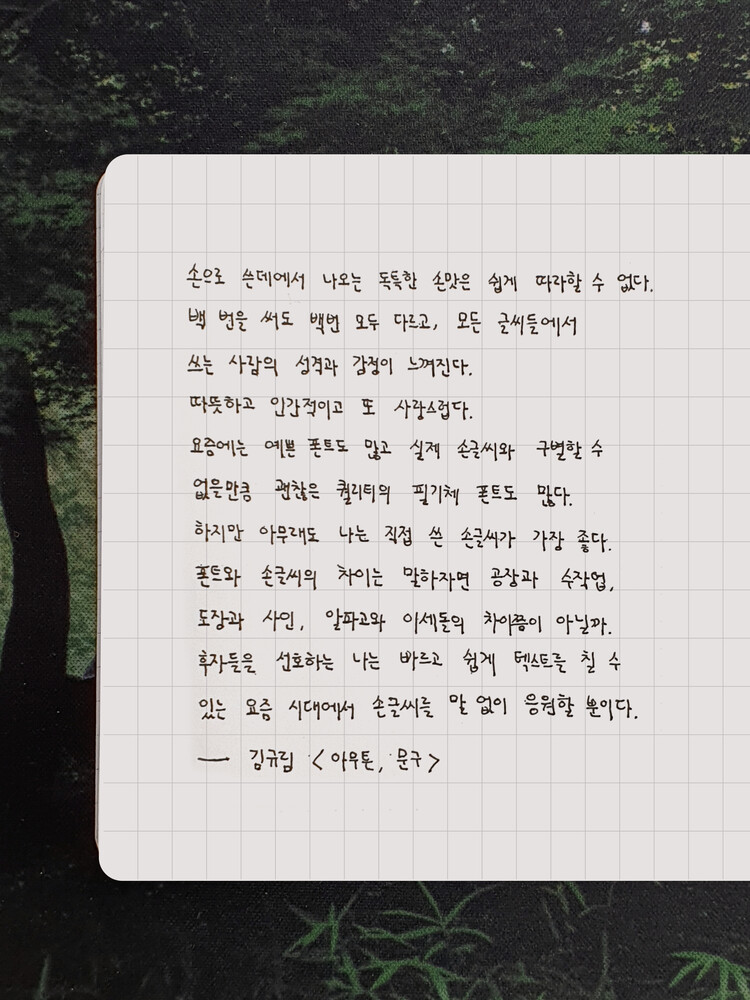 손으로 쓴데에서 나오는 독특한 손맛은 쉽게 따라할 수 없다.
백 번을 써도 백번 모두 다르고, 모든 글씨들에서
쓰는 사람의 성격과 감정이 느껴진다.
따뜻하고 인간적이고 또 사랑스럽다.
요즘에는 예쁜 폰트도 많고 실제 손글씨와 구별할 수
없을만큼 괜찮은 퀄리티의 필기체 폰트도 많다.
하지만 아무래도 나는 직접 쓴 손글씨가 가장 좋다.
폰트와 손글씨의 차이는 말하자면 공장과 수작업,
도장과 사인, 알파고와 이세돌의 차이쯤이 아닐까.
후자들을 선호하는 나는 빠르고 쉽게 텍스트를 칠 수
있는 요즘 시대에서 손글씨를 말 없이 응원할 뿐이다.
— 김규림 <아무튼, 문구>